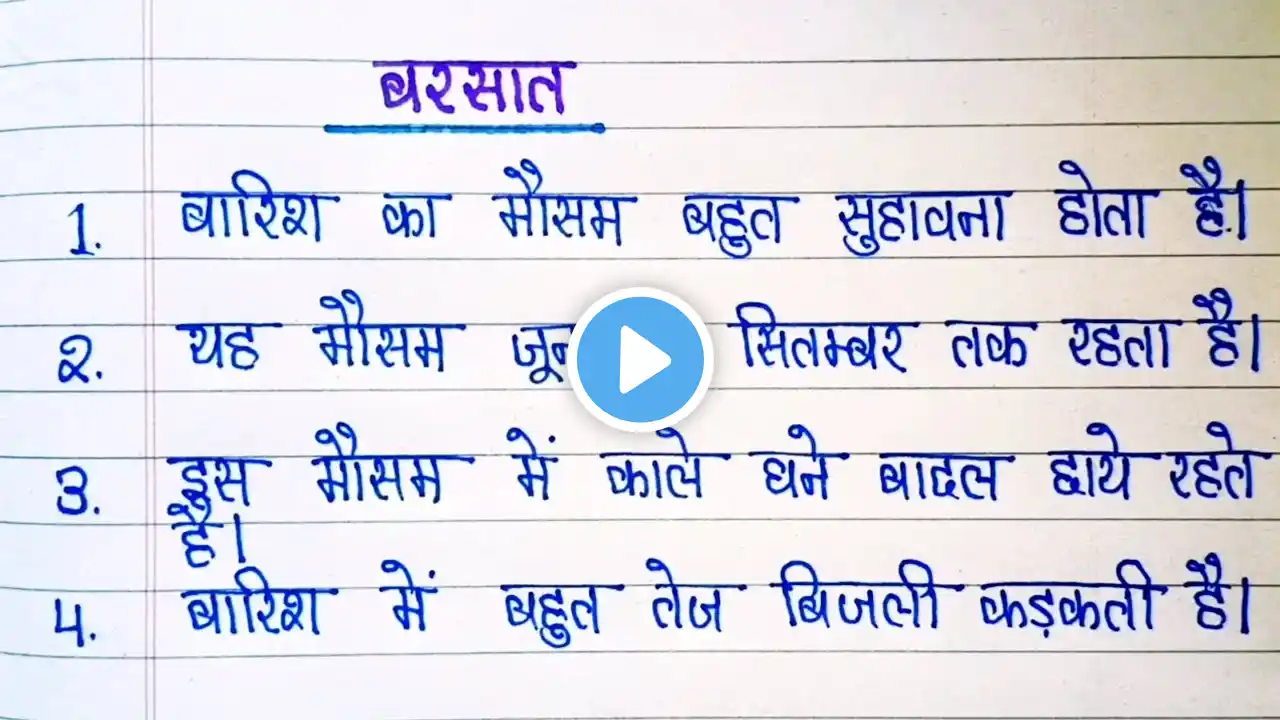 बरसात
1. बारिश का मौसम बहुत सुहावना होता है।
2. यह मौसम जून सितम्बर तक रहता है।
3. इस मौसम में काले घने बादल छाये रहते
है।
4. बारिश में बहुत तेज बिजली कड़कती है।